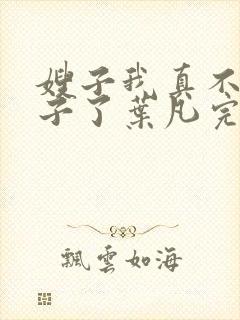 嫂子我真不
子了葉凡完
飄雲如海